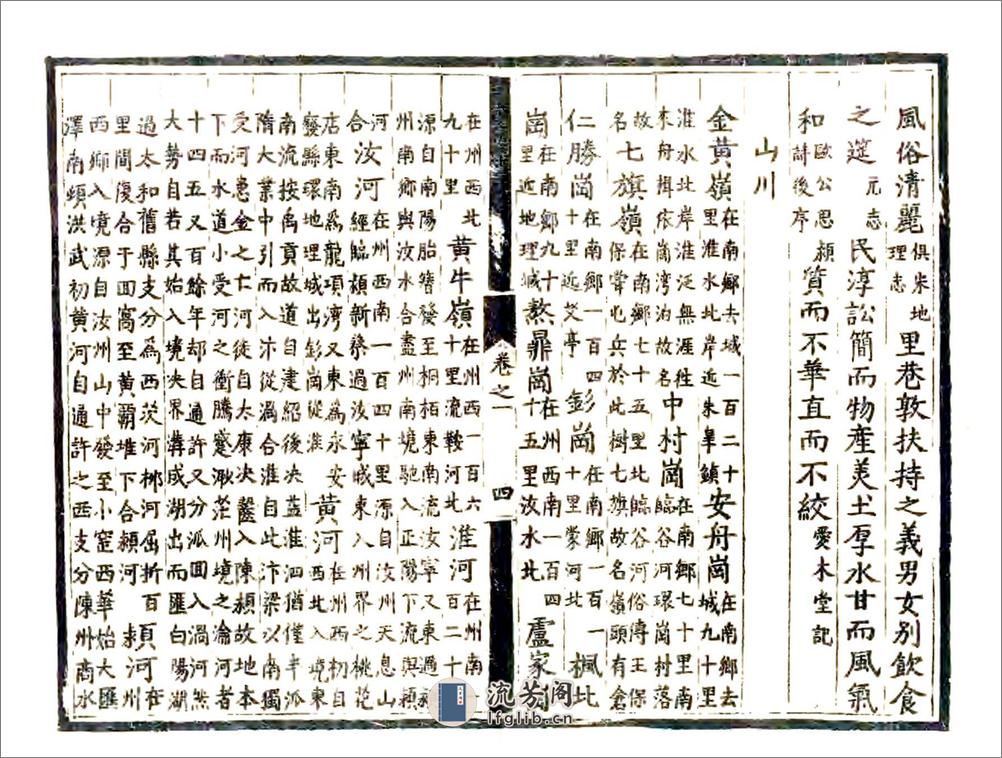 風俗清麗俱朱地理志里巷敦扶持之義男女別飲食
之筵元志民淳訟簡而物產美土厚水甘而風氣
和歐公思潁詩後序質而不華直而不絞愛木堂記
山川
金黃嶺在南鄉去城一百二十里淮水北岸近朱臯鎮安舟崗在南鄉去城九十里
淮水北岸淮泛無涯徃在南鄉七十里南
來舟揖依崗湾泊故名中村崗臨谷河環崗村落
故名七旗嶺在南鄉七十五里北臨谷河俗傳王保保常屯兵於此樹七旗故名嶺頭有倉
仁勝崗在南鄉一百四十里近艾亭彭崗在南鄉一百一十里蒙河北楓
崗在南鄉九十里近地理城熬鼎崗在州西南一百四十五里汝水北盧家
在州西北九十里黃牛嶺在州西一百六十里流鞍河北淮河在州南一百二十
源自南陽胎簪發至桐栢東南流汝寧又東過
州南鄉與汝水合盡州南境馳入正陽下流與潁
合汝河在州西南一百四十里源自汝州天息山經臨潁新蔡過汝寧城東入州界之桃花
店東南爲龍項湾又東爲永安黃河在州西初自西北入境東
廢縣環地理城出彭崗從淮
南流按禹貢故道自建紹後决益淮泗猶僅半派
隋大業中引而入汴從渦合淮自此汴梁以南獨
受河患金之亡河徙自太康决齧入陳潁故地本
下而水道小受河之衝騰蹙渺茫州境之淪河者
十四五又百餘年却自通許又分派回入渦河然
大勢自若其始入境决界溝咸湖出而匯白陽湖
過太和舊縣支分爲西茨河柳河屈折百
里間復合于回窩至黃霸堆下合潁河潁河在州
西鄉入境源自汝州山中發至小窑西華始大匯
澤南頭洪武初黃河自通許之西支分陳州商水
卷之一
四
流芳阁
lfglib.cn